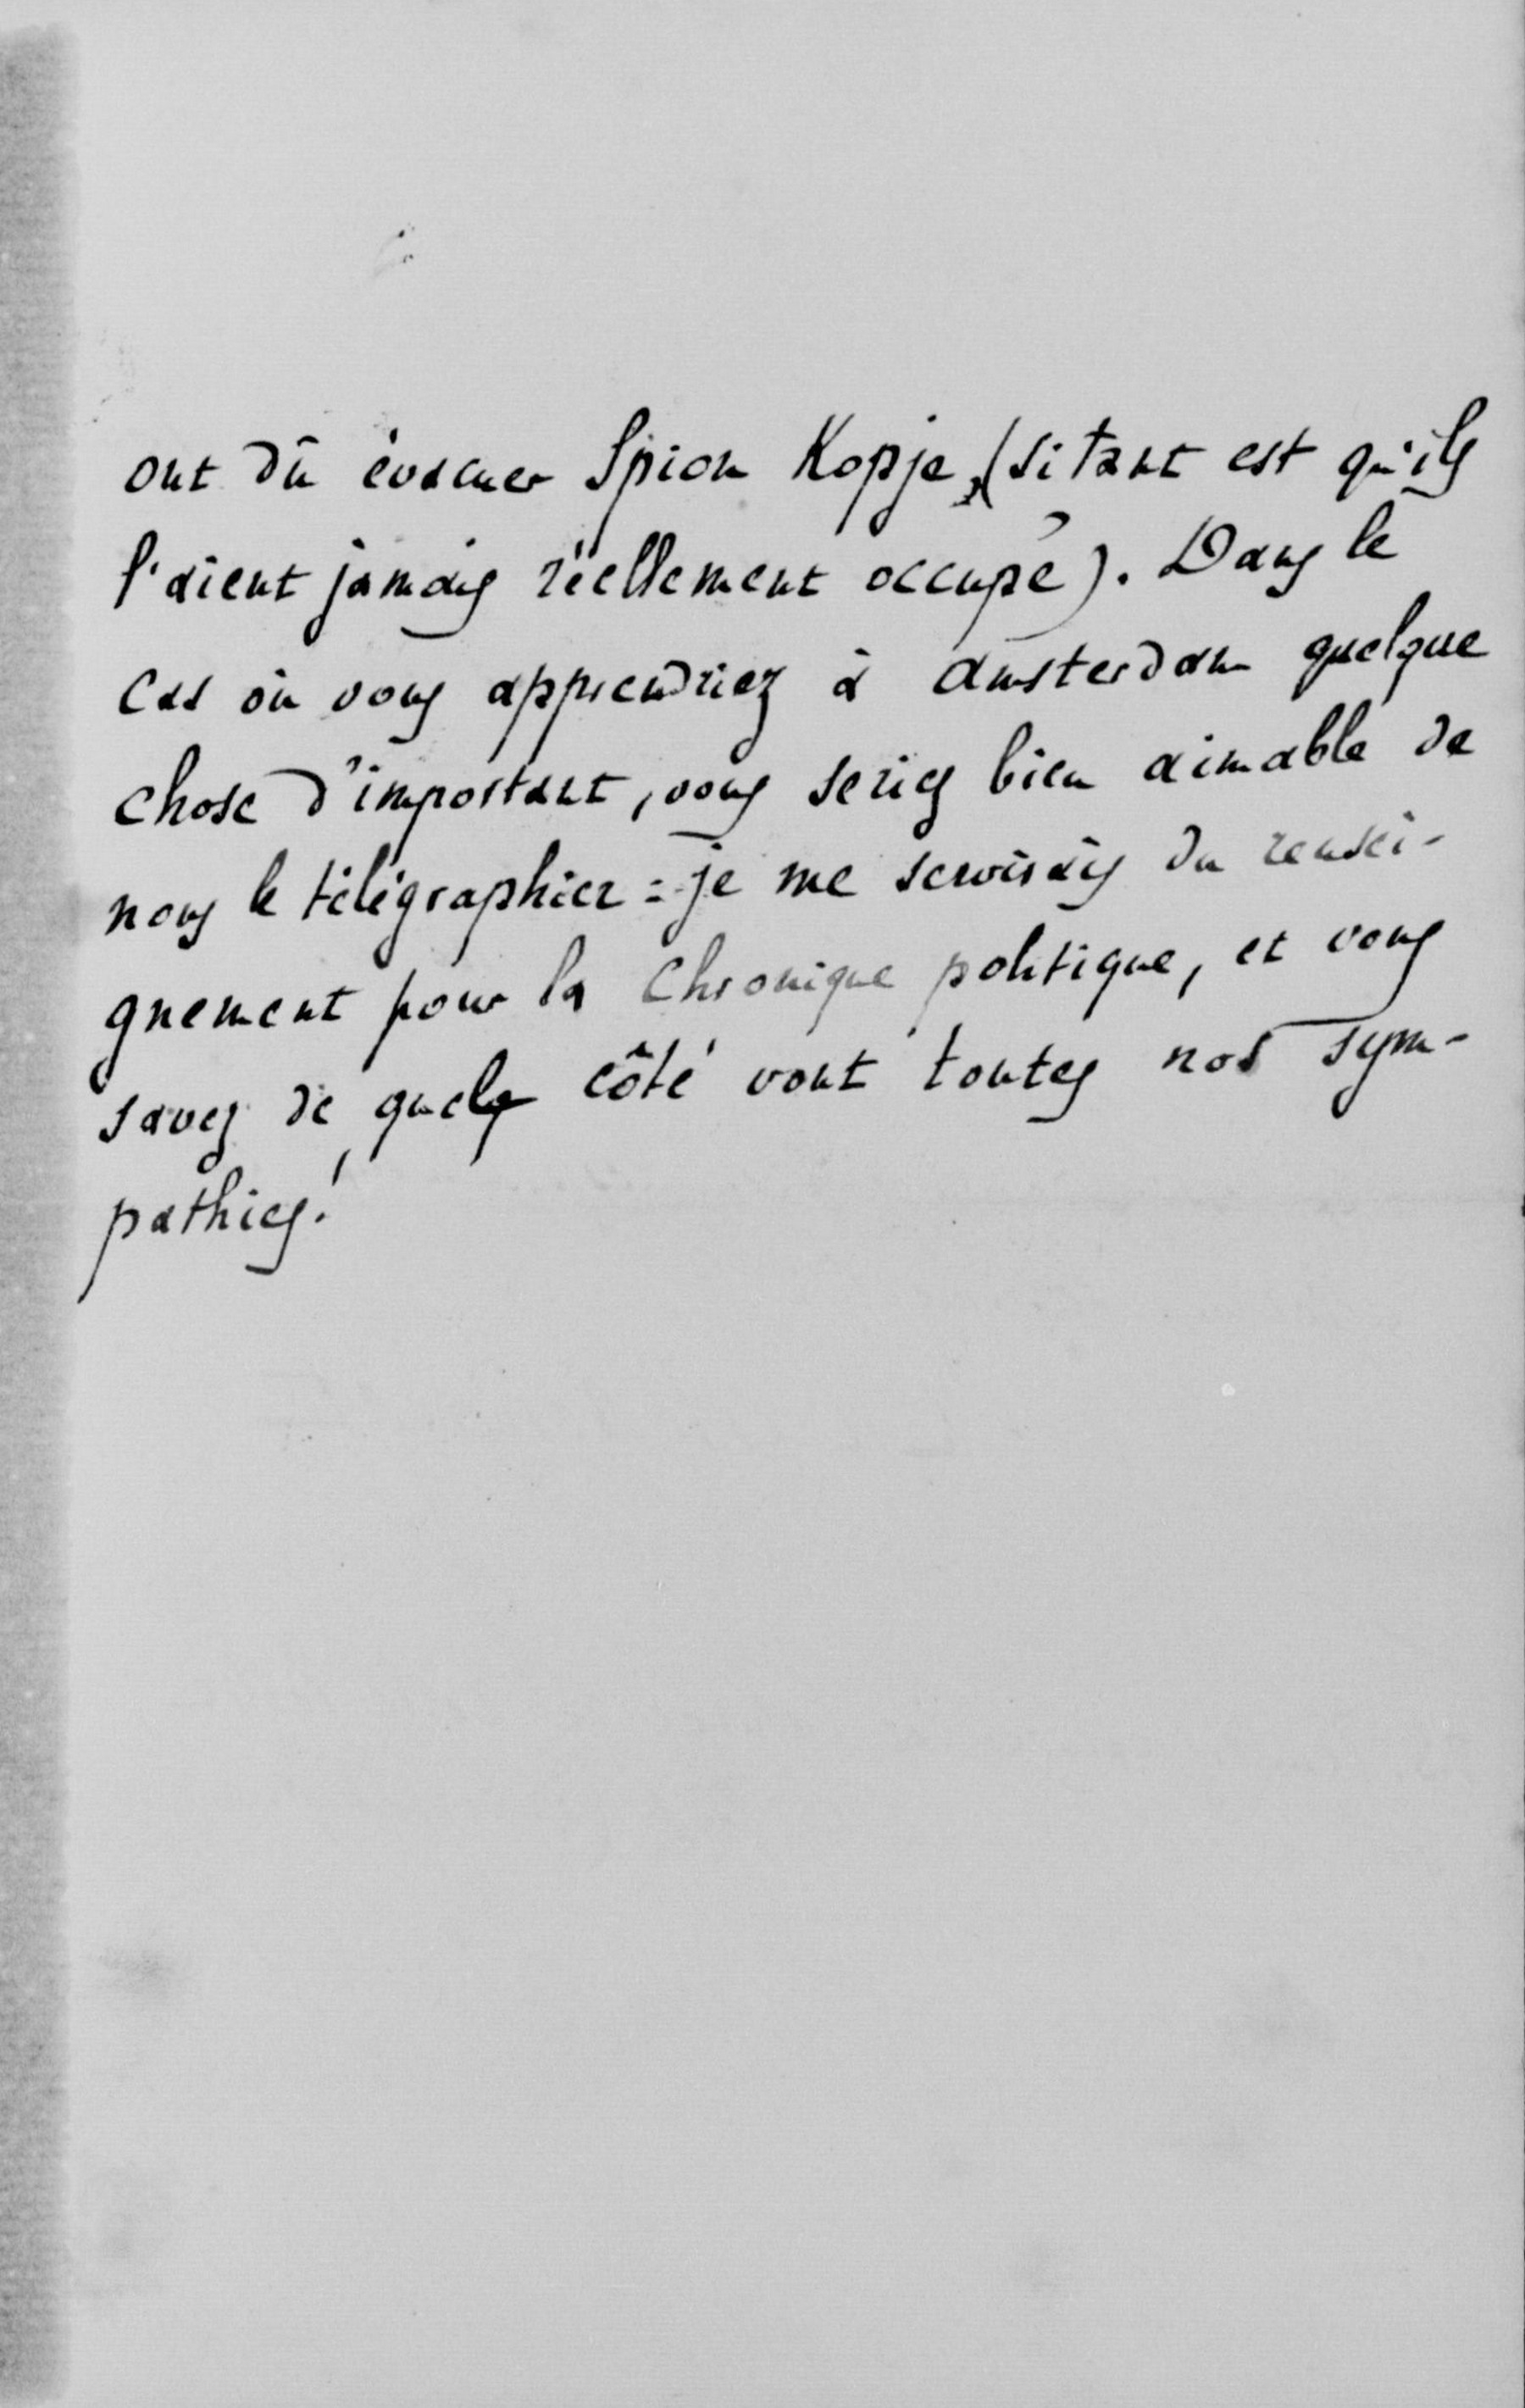 ont dû évacuer Spion Kopje, (si tant est qu'ils
l'aient jamais réellement occupé). Dans le
cas où vous apprendriez à Amsterdam quelque
chose d'important, vous seriez bien aimable de
nous le télégraphier : je me servirais du rensei-
gnement pour la Chronique politique, et vous
savez de quel côté vont toutes nos sym-
pathies!